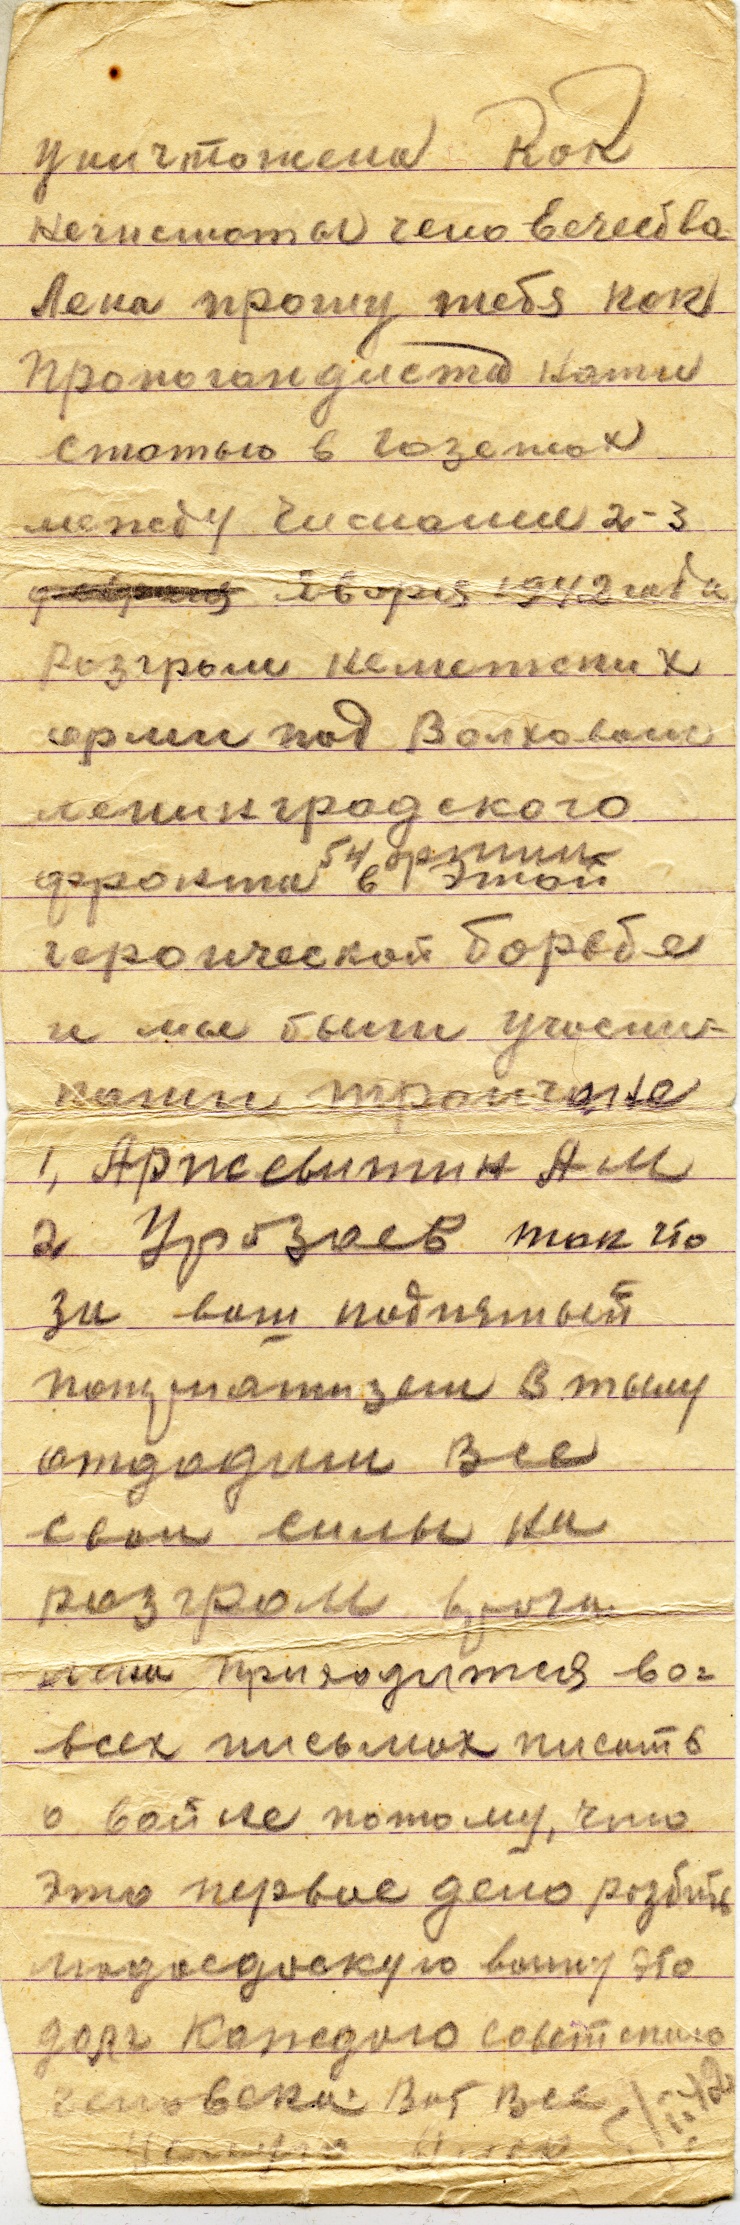 уничтожена как
нечистоты человечества
Лена прошу тебя как
Пропогандиста найти
статью в газетах
между числами 2-3
февраля Января 1942 года
Разгром неметских
арми под Волховом
ленинградского
54 армии
фронта в этой
героической борьбе
и мы были участни-
ками
1, Аржевитин А М
2 Уразаев так что
за ваш поднятый
в тылу
отдадим все
свои силы на
разгром врага
Лена приходится во-
всех письмах писать
о войне потому, что
это первое дело розбить
людоедоскую это
долг Каждого советского
человека. Вот Все